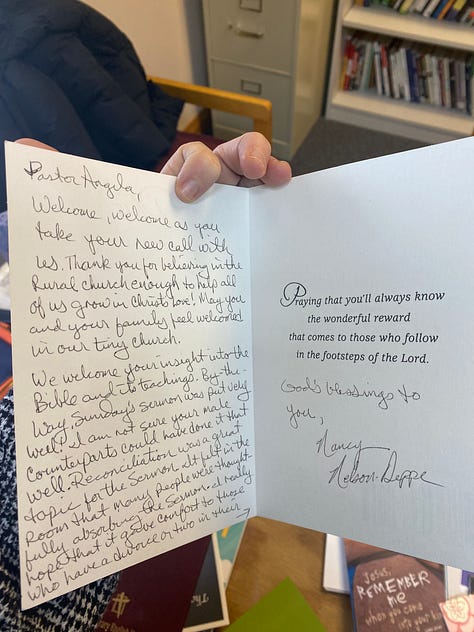 Pastor Angela,
Welcome, welcome as you
take your new call with
us. Thank you for believing in the
Rural church enough to help all
of us grow in Christs love! May you
and your family feel welcomed
in our tiny church.
We welcome your insight into the
Bible and its teachings. By-the-
Way, Sunday's sermon was put very
well. I am not sure your male
counterparts could have done it that
well. Reconciliation was a great
topic for the Sermon. It felt in the
Room that many people were thought-
fully absorbing the Sermon. I really
hope that it gave comfort to those
who have a divorce or two in their →
Praying that you'll always know
the wonderful reward
that comes to those who follow
in the footsteps of the Lord.
God's blessings to
you,
Nancy
Nelson-Deppe
Jesus,
REMEMBER
me
when you come